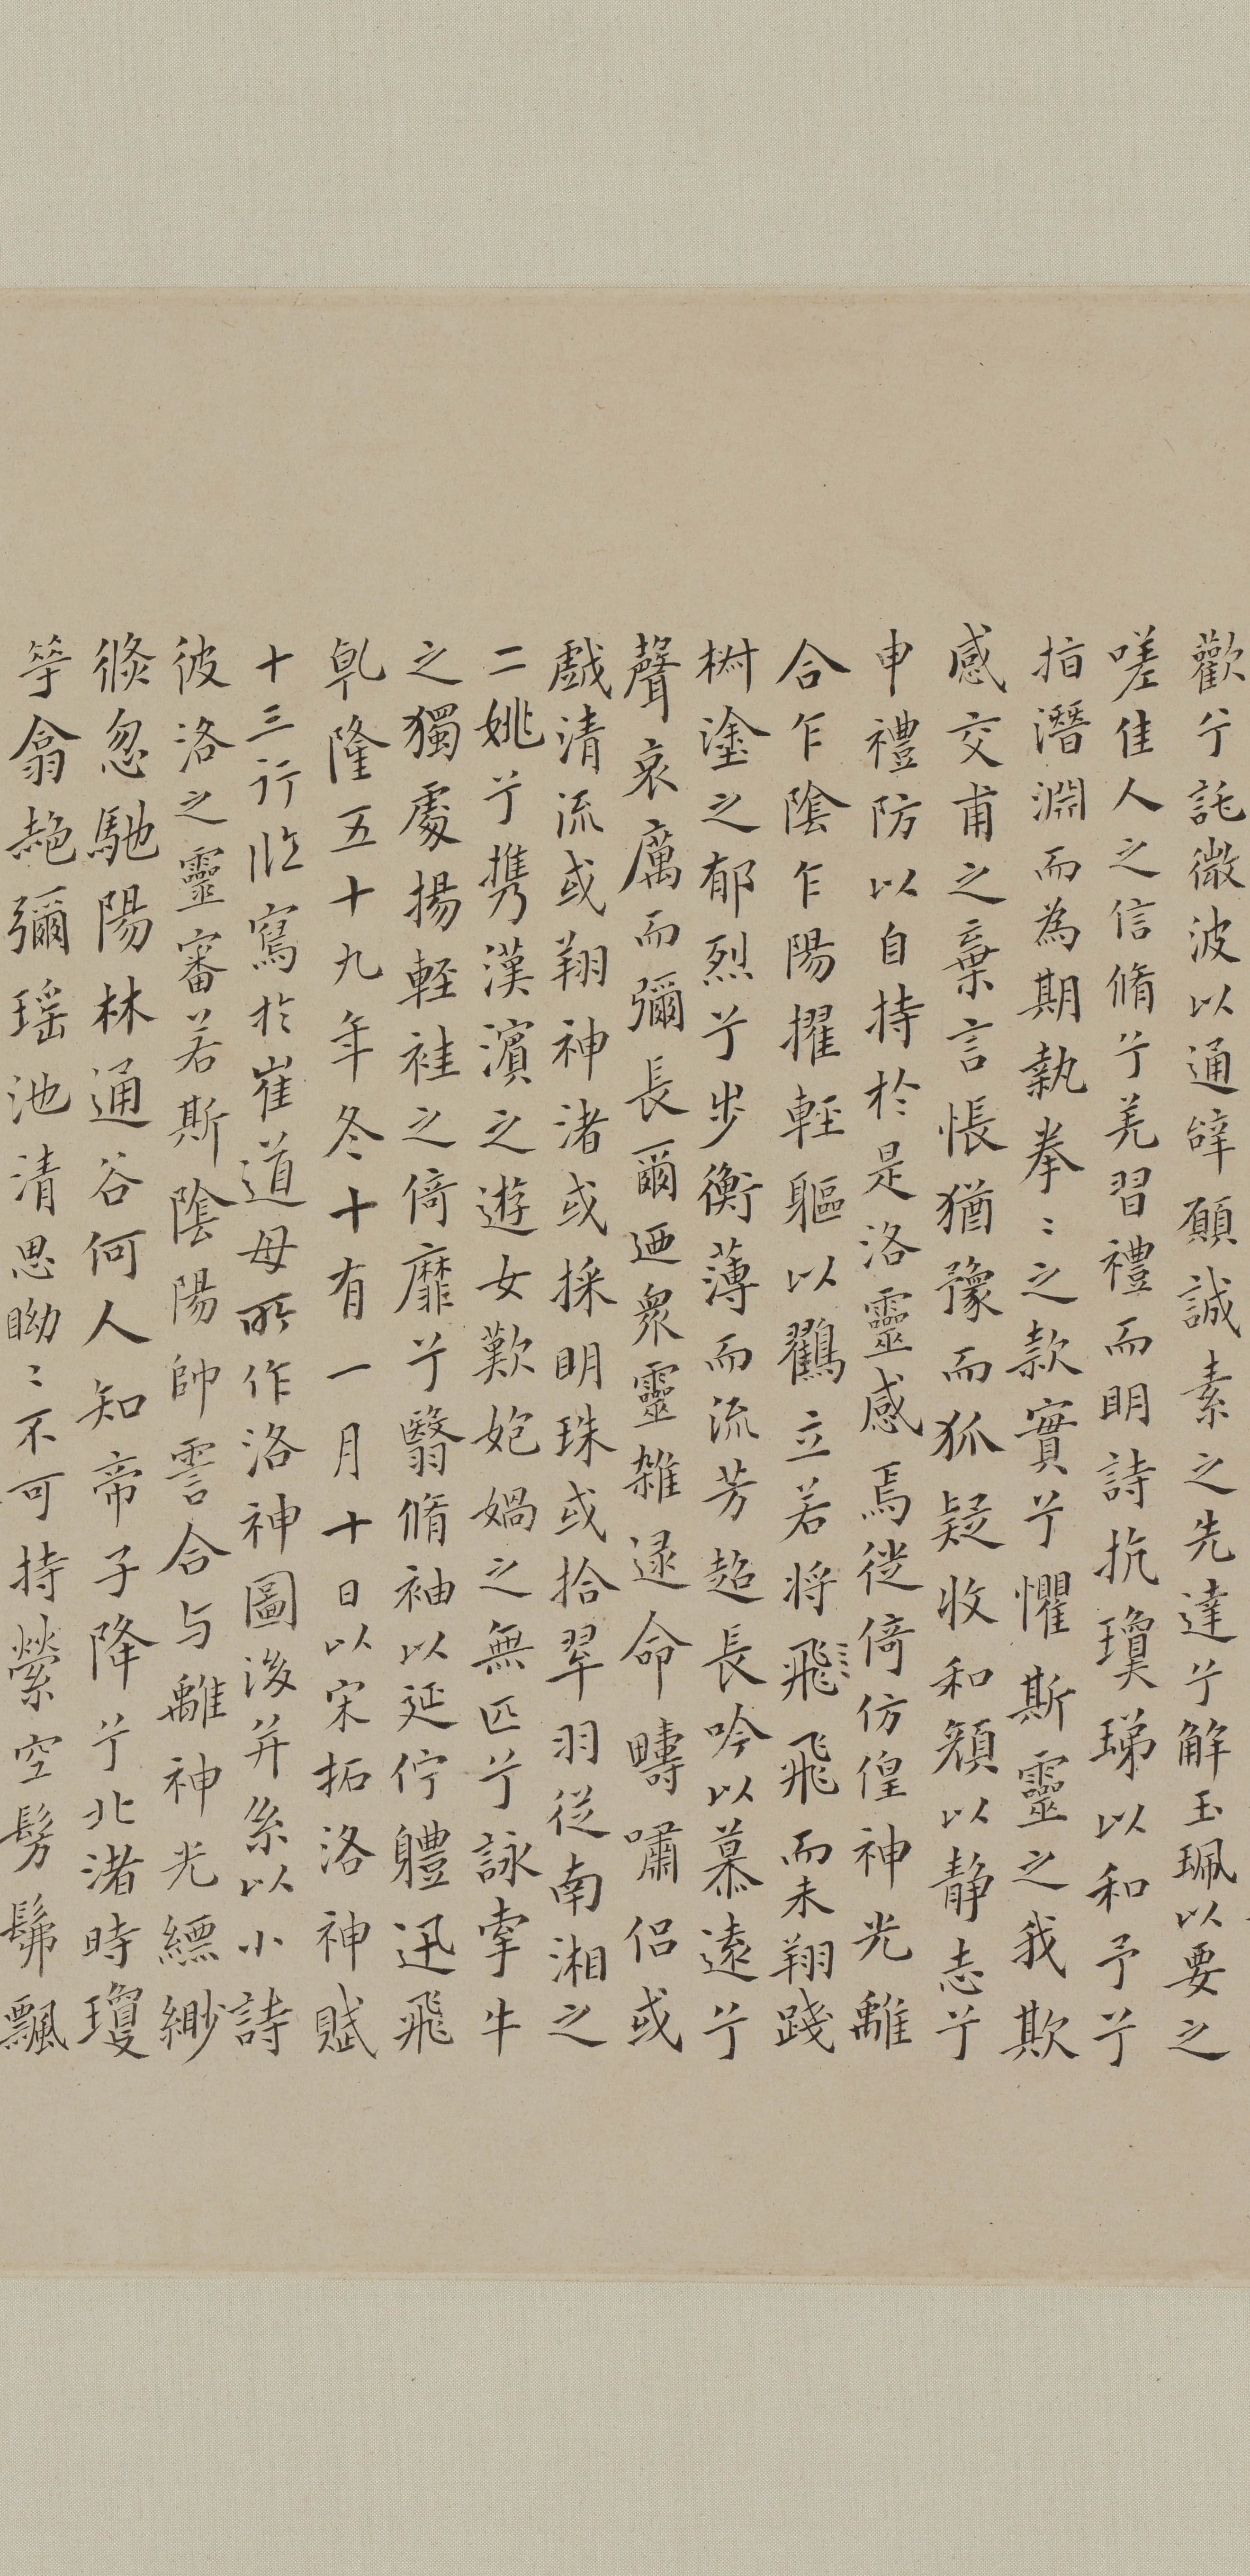 歡兮託微波以通辝願誠素之先達兮解玉珮以要之
嗟佳人之信脩兮羌習禮而明詩抗瓊珶以和予兮
指潛淵而為期執拳〻之款實兮懼斯靈之我欺
感交甫之棄言悵猶豫而狐疑收和顏以静志兮
申禮防以自持於是洛靈感焉徙倚仿偟神光離
合乍陰乍陽擢輕軀以鶴立若将飛飛而未翔踐
樹塗之郁烈兮步衡薄而流芳超長吟以慕遠兮
聲哀厲而彌長爾迺衆靈雜逯命疇嘯侣或
戲清流或翔神渚或採明珠或拾翠羽従南湘之
二姚兮携漢濱之遊女歎妑媧之無匹兮詠牽牛
之獨處揚輕袿之倚靡兮翳脩袖以延佇體迅飛
乹隆五十九年冬十有一月十日以宋拓洛神賦
十三行臨寫於崔道母所作洛神圖後并系以小詩
彼洛之靈審若斯陰陽帥雲合与離神光縹緲
倐忽馳陽林通谷何人知帝子降兮北渚時瓊
䒭翕赩彌瑶池清思眑〻不可持縈空髣髴飄